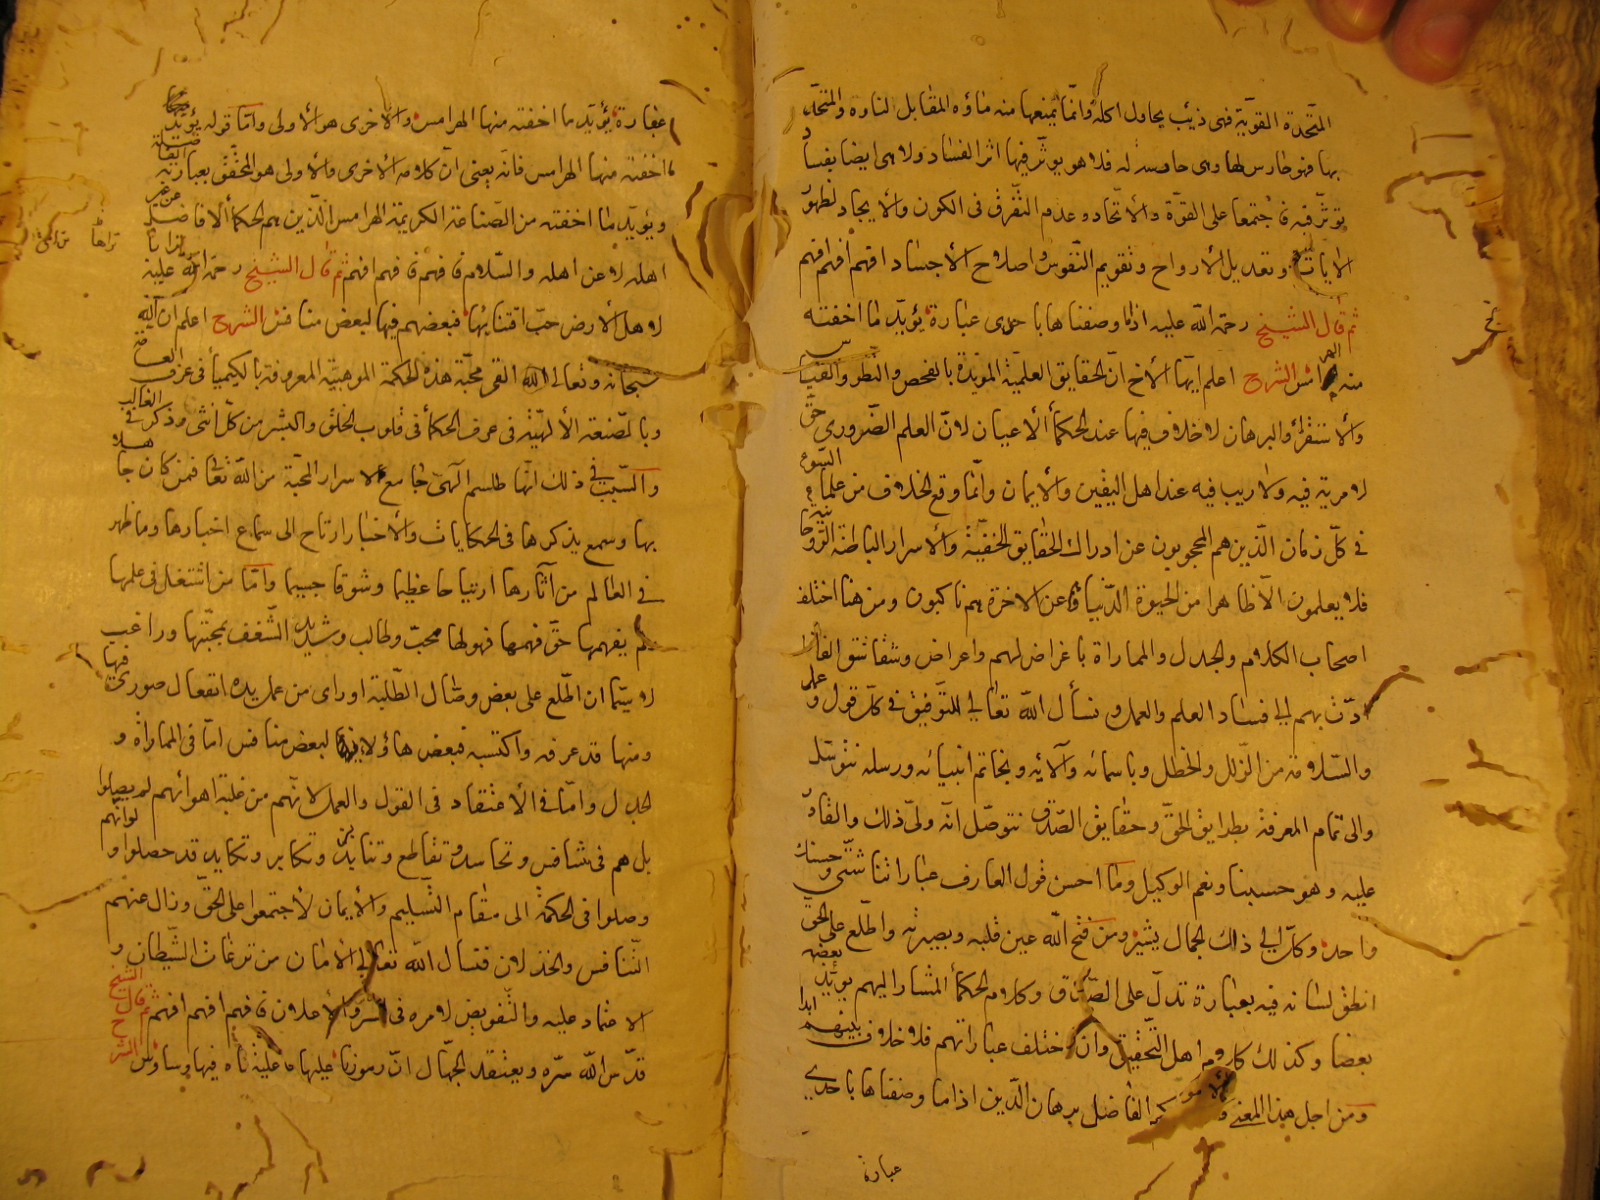 المتّحدة القويّة فتى ذئيب يحاول اكله وانّما يمنعها منه ماؤه المقابل لناره والمتحّد
بها فهو حارس لها وهى حارسة له فلا هو يوثّر فيها اثر الفساد ولا هى ايضا بفساد
توثّر فيه فاجتمعا على القوّة والأتحاد وعدم التفّرق فى الكون والأيجاد لظهور
الايات وتعديل الارواح وتقويم النّفوس واصلاح الأجساد افهم افهم افهم
ثم قال الشيخ رحمة اللّه عليه اذا وصفناها باحدى عبارة يؤيّد ما اخفته
منه الهرامس الشرح اعلم ايّها الأخ انّ الحقايق العلميّة المويّدة بالفحص والنّظر والقياس
والأستقراء والبرهان لا خلاف فيها عند الحكمأ الأعيان لانّ العلم الضّرورى حقّ
لا مرية فيه ولا ريب فيه عند اهل اليقين والأيمان وانّما وقع الخلاف من علماء السّوء
فى كلّ زمان الّذين هم المحجوبون عن ادراك الحقايق الخفيّة والأسرار الباطنة الرّوحانيّة
فلا يعلمون الّا ظاهرا من الحيوة الدّنيا وهم عن الاخرة هم ناكبون ومن هنا اختلف
اصحاب الكلام والجدل والمماراة باغراض لهم واعراض وشقاشق الفاظ
ادّت بهم الى فساد العلم والعمل ونسأل اللّه تعالى التّوفيق فى كلّ قول وعمل
والسّلامة من الزّلل والخطل وباسمائه وآلائه وبخاتم انبيائه ورسله نتوسّل
والى تمام المعرفة بطرايق الحقّ وحقايق الصّدق نتوصّل انّه ولىّ ذلك والقادر
عليه وهو حسبنا ونعم الوكيل وما احسن قول العارف عباراتنا شتّى وحسنك
واحد وكلّ الى ذاك الجمال يشير ومن فتح اللّه عين قلبه وبصيرته واطّلع على الحقّ
انطق لسانه فيه بعبارة تدلّ على الصّدق وكلام الحكمأ المشار اليهم يويّد بعضه
بعضا وكذلك كلام اهل التّحقيق وان اختلف عباراتهم فلا خلاف بينهم ابدا
ومن اجل هذا المعنى الفاضل برهان الدّين اذا ما وصفناها باحدى
عبارة
عبارة يؤيّد ما اخفته منها الهرامس والأخرى هو الاولى وامّا قوله يؤيّد
ما اخفته منها الهرامس فانّه يعنى انّ كلامه الأخرى والأولى هو المحقّق بعبارته
ويؤيّد ما اخفته من الصّناعة الكريمة الهرامس الّذين هم الحكمأ الافاضل
اهله لا عن اهله والسّلام فافهم فافهم افهم ثم قال الشيخ رحمة اللّه عليه
لاهل الارض حبّ اقتنائها فبعضهم فيها لبعض منافس الشرح اعلم ان اللّه
سبحانه وتعالى القى محبّة هذه الحكمة الموهبيّة المعروفة بالكيميأ فى عرف العامّة
وبالصّنعة الألهيّة فى عرف الحكمأ فى قلوب الخلق والبشر من كلّ انثى وذكر فى الغالب
والسّبب فى ذلك انّها طلسم الهىّ جامع لاسرار المحبّة من اللّه تعا فمن كان جاهلا
بها وسمع بذكرها فى الحكايات والأخبار ارتاح الى سماع اخبارها وما ظهر
فى العالم من آثارها ارتياحا عظيما وشوقا جسيما وامّا من اشتغل فى علمها
لم يفهمها حقّ فهمها فهو لها محبّ وطالب وشديد الشّغف بمحبّتها وراغب
لا سيّما ان اطّلع على بعض وصّال الطّلبة او راى من عمل يده انفعال صورىّ فيها
ومنها قد عرفه واكتسبه فبعض هاؤلاء فيها لبعض منافس امّا فى المماراة و
الجدل وامّا فى الاعتقاد فى القول والعمل لانّهم من غلبة اهوائهم لم يصلوا
بل هم فى تنافس وتحاسد وتقاطع وتنابذ وتكابر وتكايد قد حصلوا ولو انّهم
وصلوا فى الحكمة الى مقام التّسليم والأيمان لاجتمعوا على الحقّ وزال عنهم
التّنافس والخذلان فنسال اللّه تعالى الأمان من نزغات الشّيطان و
الاعتماد عليه والتّفويض لامره فى السّر والأعلان فافهم افهم افهم ثم قال الشيخ
قدّس اللّه سرّه ويعتقد الجهّال انّ رموزنا عليها فيها وساوس الشرح